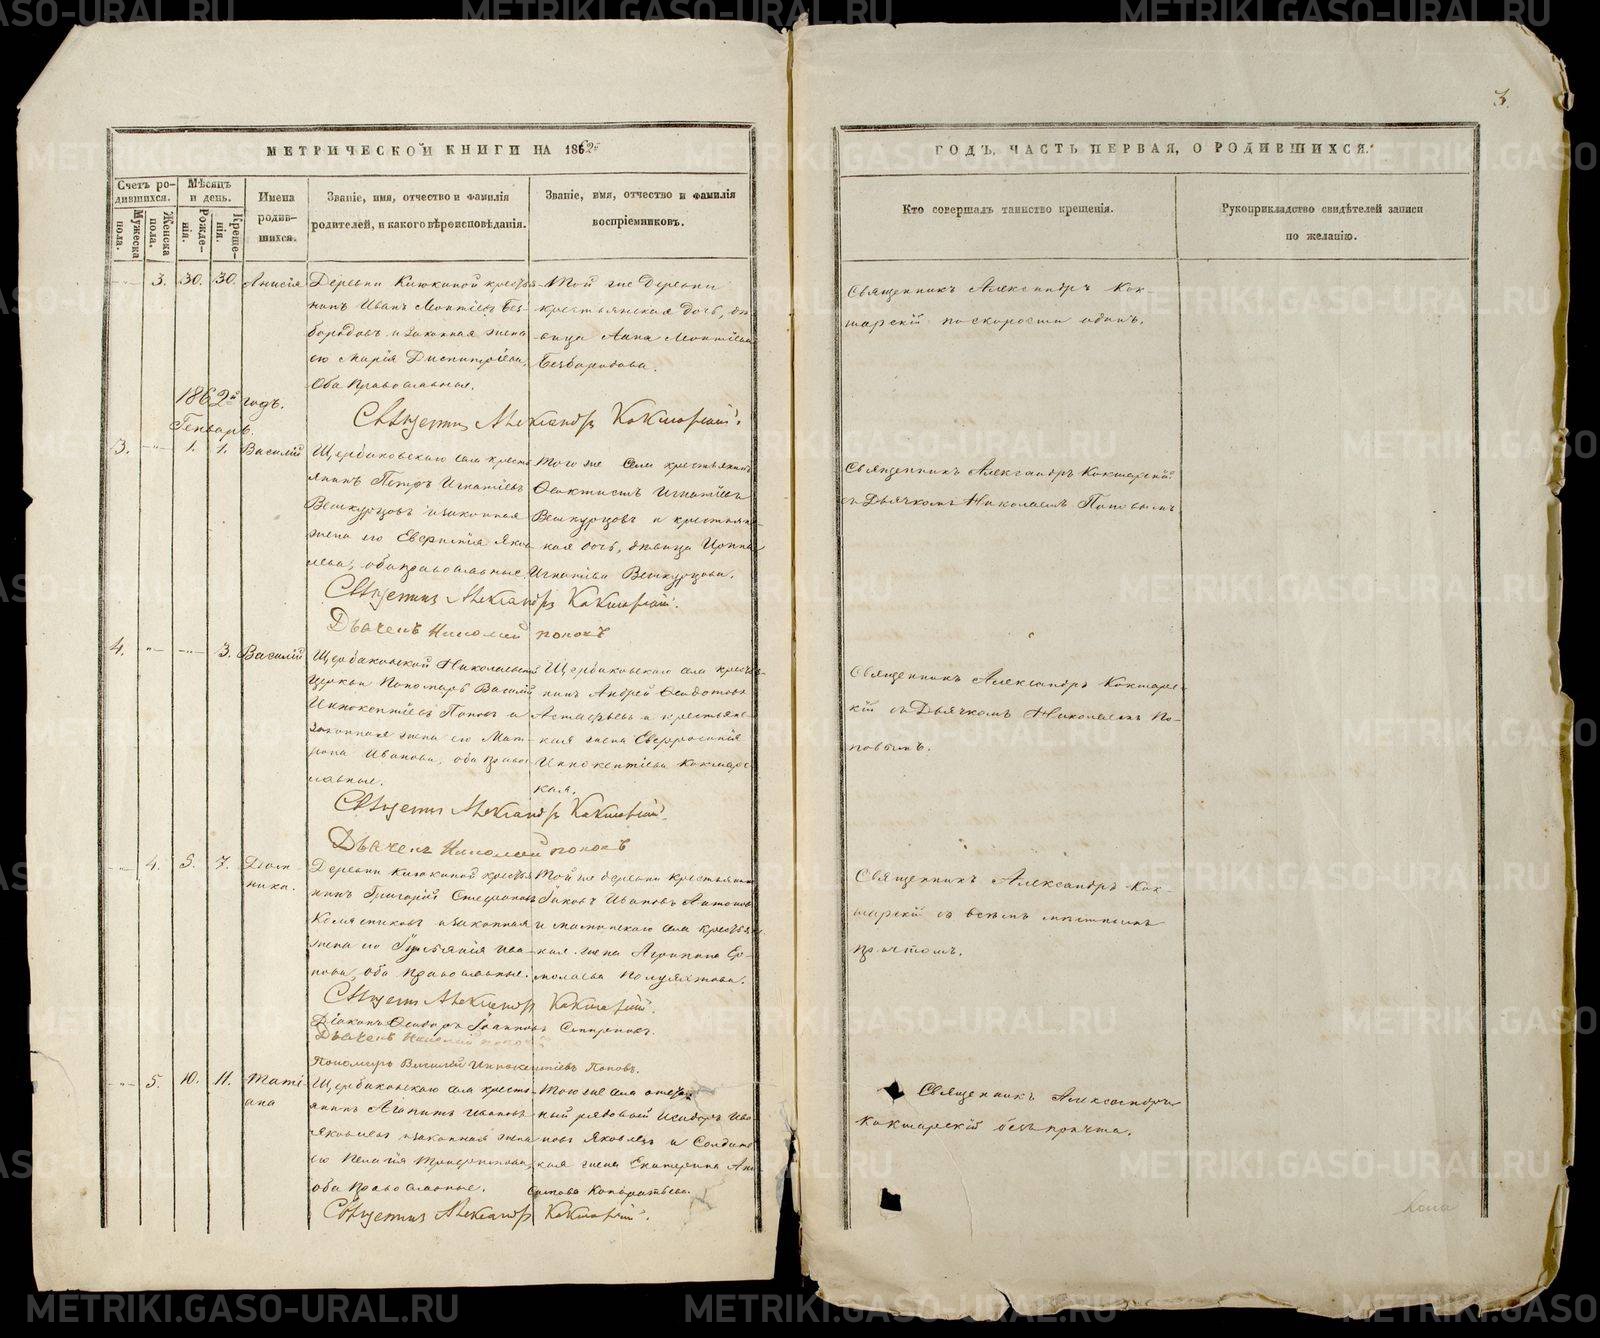 3.
МЕТРИЧЕСКОЙ КНИГИ НА 1862й
ГОДЪ, ЧАСТЬ ПЕРВАЯ, О РОДИВШИХСЯ.
Счетъ родившихся.
Мужеска пола.
Женска пола.
Мѣсяцъ и день.
Рожденія.
Крещенія.
Имена родившихся.
Званіе, имя, отчество и фамилія родителей, и какого вѣроисповѣданія.
Званіе, имя, отчество и фамилія воспріемниковъ.
Кто совершалъ таинство крещенія.
Рукоприкладство свидѣтелей записи по желанію.
3. 30. 30. Анисія
Деревни Клюкиной крестья-
нинъ Иванъ Леонтіевъ Без-
бородовъ и законная жена
его Марія Димитріева,
Оба Православные.
Той же Деревни
крестьянская дочь, дѣ-
вица Анна Леонтіева
Безбородова.
Священникъ Александръ Кок-
шарскій по скорости одинъ.
Священникъ Александръ Кокшарскій.
1862й годъ.
Генварь.
3. 1. 1. Василій
Щербаковскаго села кресть-
янинъ Петръ Игнатіевъ
Вешкурцовъ и законная
жена его Евгенія Яков-
лева, оба православные.
Того же села крестьянинъ
Феоктистъ Игнатіевъ
Вешкурцовъ и крестьян-
ская дочь, дѣвица Ирина
Игнатіева Вешкурцова.
Священникъ Александръ Кокшарскій
съ Дьячкомъ Николаемъ Поповымъ
Священникъ Александръ Кокшарскій.
Дьячекъ Николай Поповъ
4. 3. Василій
Щербаковской Николаевской
церкви Пономарь Василій
Иннокентіевъ Поповъ и
законная жена его Мат-
рона Иванова, оба право-
славные.
Щербаковскаго села крестья-
нинъ Андрей Феодотовъ
Астафьевъ и крестьянс-
кая жена Евфросинія
Иннокентіева Кокшарс-
кая.
Священникъ Александръ Кокшарс-
кій съ Дьячкомъ Николаемъ По-
повымъ.
Священникъ Александръ Кокшарскій.
Дьячекъ Николай Поповъ
4. 5. 7. Дом
ника.
Деревни Клюкиной крестья-
нинъ Григорій Стефановъ
и законная
жена его Ива-
нова, оба Православные.
Той же деревни крестьянинъ
Яковъ Ивановъ Антоновъ
и села крестьянс-
кая жена Агрипина Ер-
молаева Полуяхтова.
Священникъ Александръ Кок-
шарскій съ всѣмъ мѣстнымъ
причтомъ.
Священникъ Александръ Кокшарскій.
Діаконъ Феодоръ Іоанновъ
Дьячекъ Николай Поповъ
Пономарь Василій Иннокентіевъ Поповъ.
5. 10. 11. Таті
ана
Щербаковскаго села кресть-
янинъ Агапитъ Ивановъ
Яковлевъ и законная жена
его Пелагія
оба Православные.
Того же села отстав-
ный рядовой Исидоръ Ива-
новъ Яковлевъ и Солдатс-
кая жена Екатерина
Кондратьева.
Священникъ Александръ
Кокшарскій безъ причта.
Священникъ Александръ Кокшарскій.
METRIKI.GASO-URAL.RU